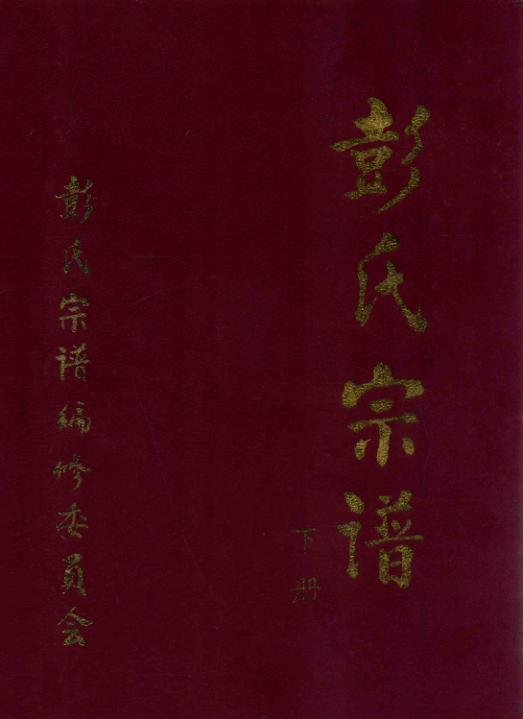 彭氏宗谱
下册
彭氏宗谱编修委员会